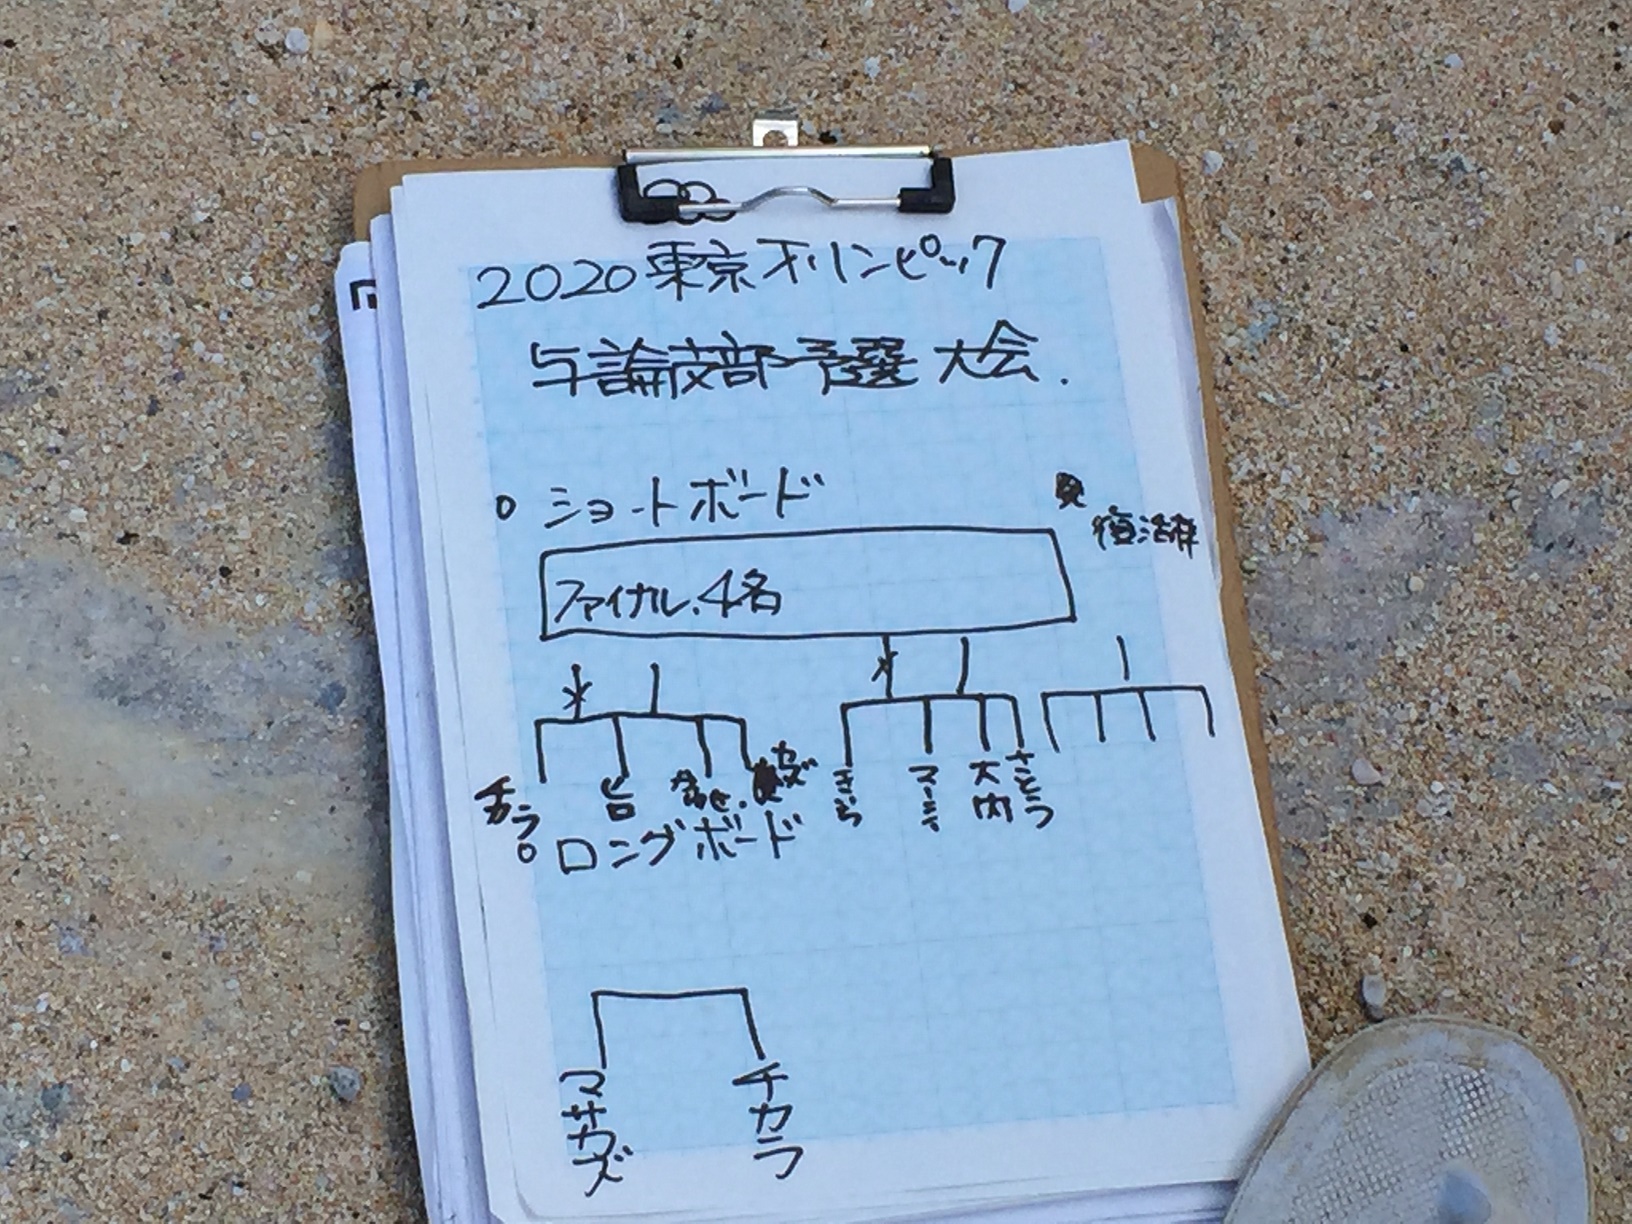 2020東京オリンピック
与論支部予選大会.
○ ショートボード
復活枠
ファイナル.4名
チカラ
ヒロ
カズ
きいら
大内
さとう
○ ロングボード
マサカズ
チカラ